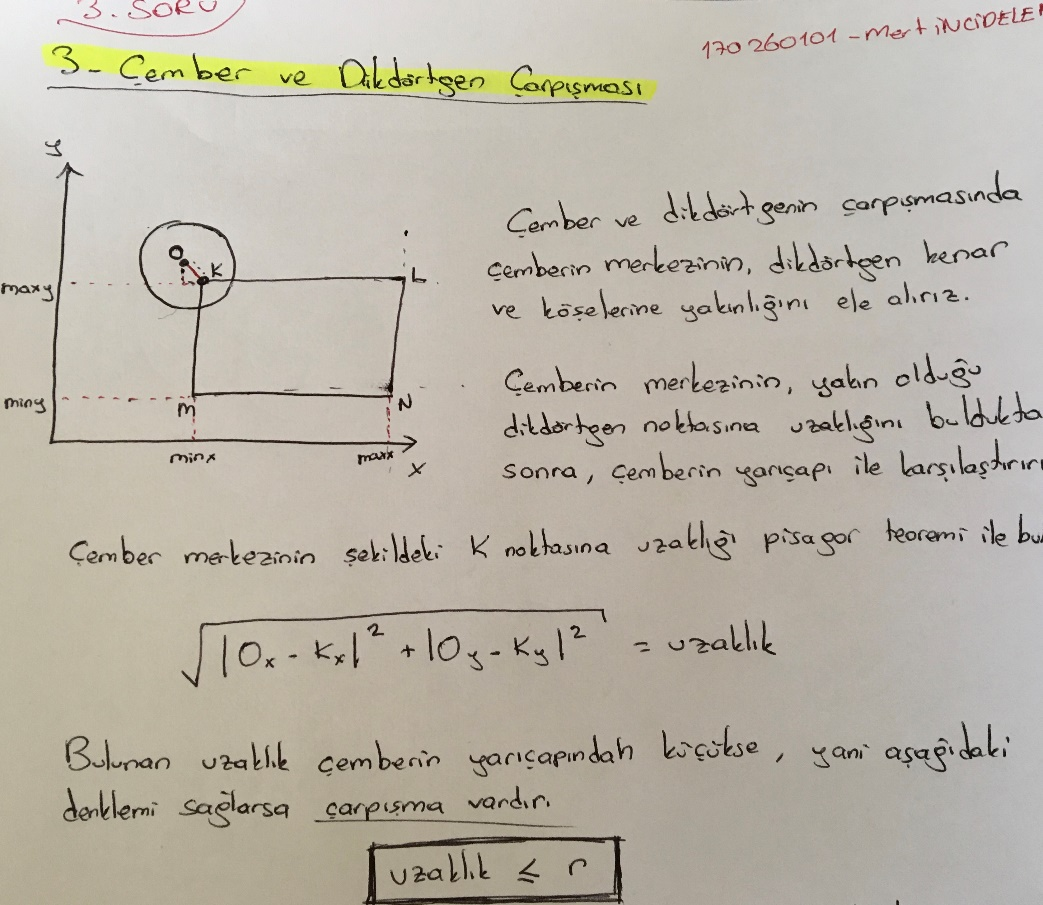 3. SORU
170260101 - Mert İNCİDELEN
3- Çember ve Dikdörtgen Çarpışması
y
O
K
L
maxy
miny
M
N
minx
maxx
x
Çember ve dikdörtgenin çarpışmasında
çemberin merkezinin, dikdörtgen kenar
ve köşelerine yakınlığını ele alırız.
Çemberin merkezinin, yakın olduğu
dikdörtgen noktasına uzaklığını buldukta
sonra, çemberin yarıçapı ile karşılaştırır
Çember merkezinin şekildeki K noktasına uzaklığı pisagor teoremi ile bu
√|Ox - Kx|² + |Oy - Ky|² = uzaklık
Bulunan uzaklık çemberin yarıçapından küçükse, yani aşağıdaki
denklemi sağlarsa çarpışma vardır.
uzaklık ≤ r